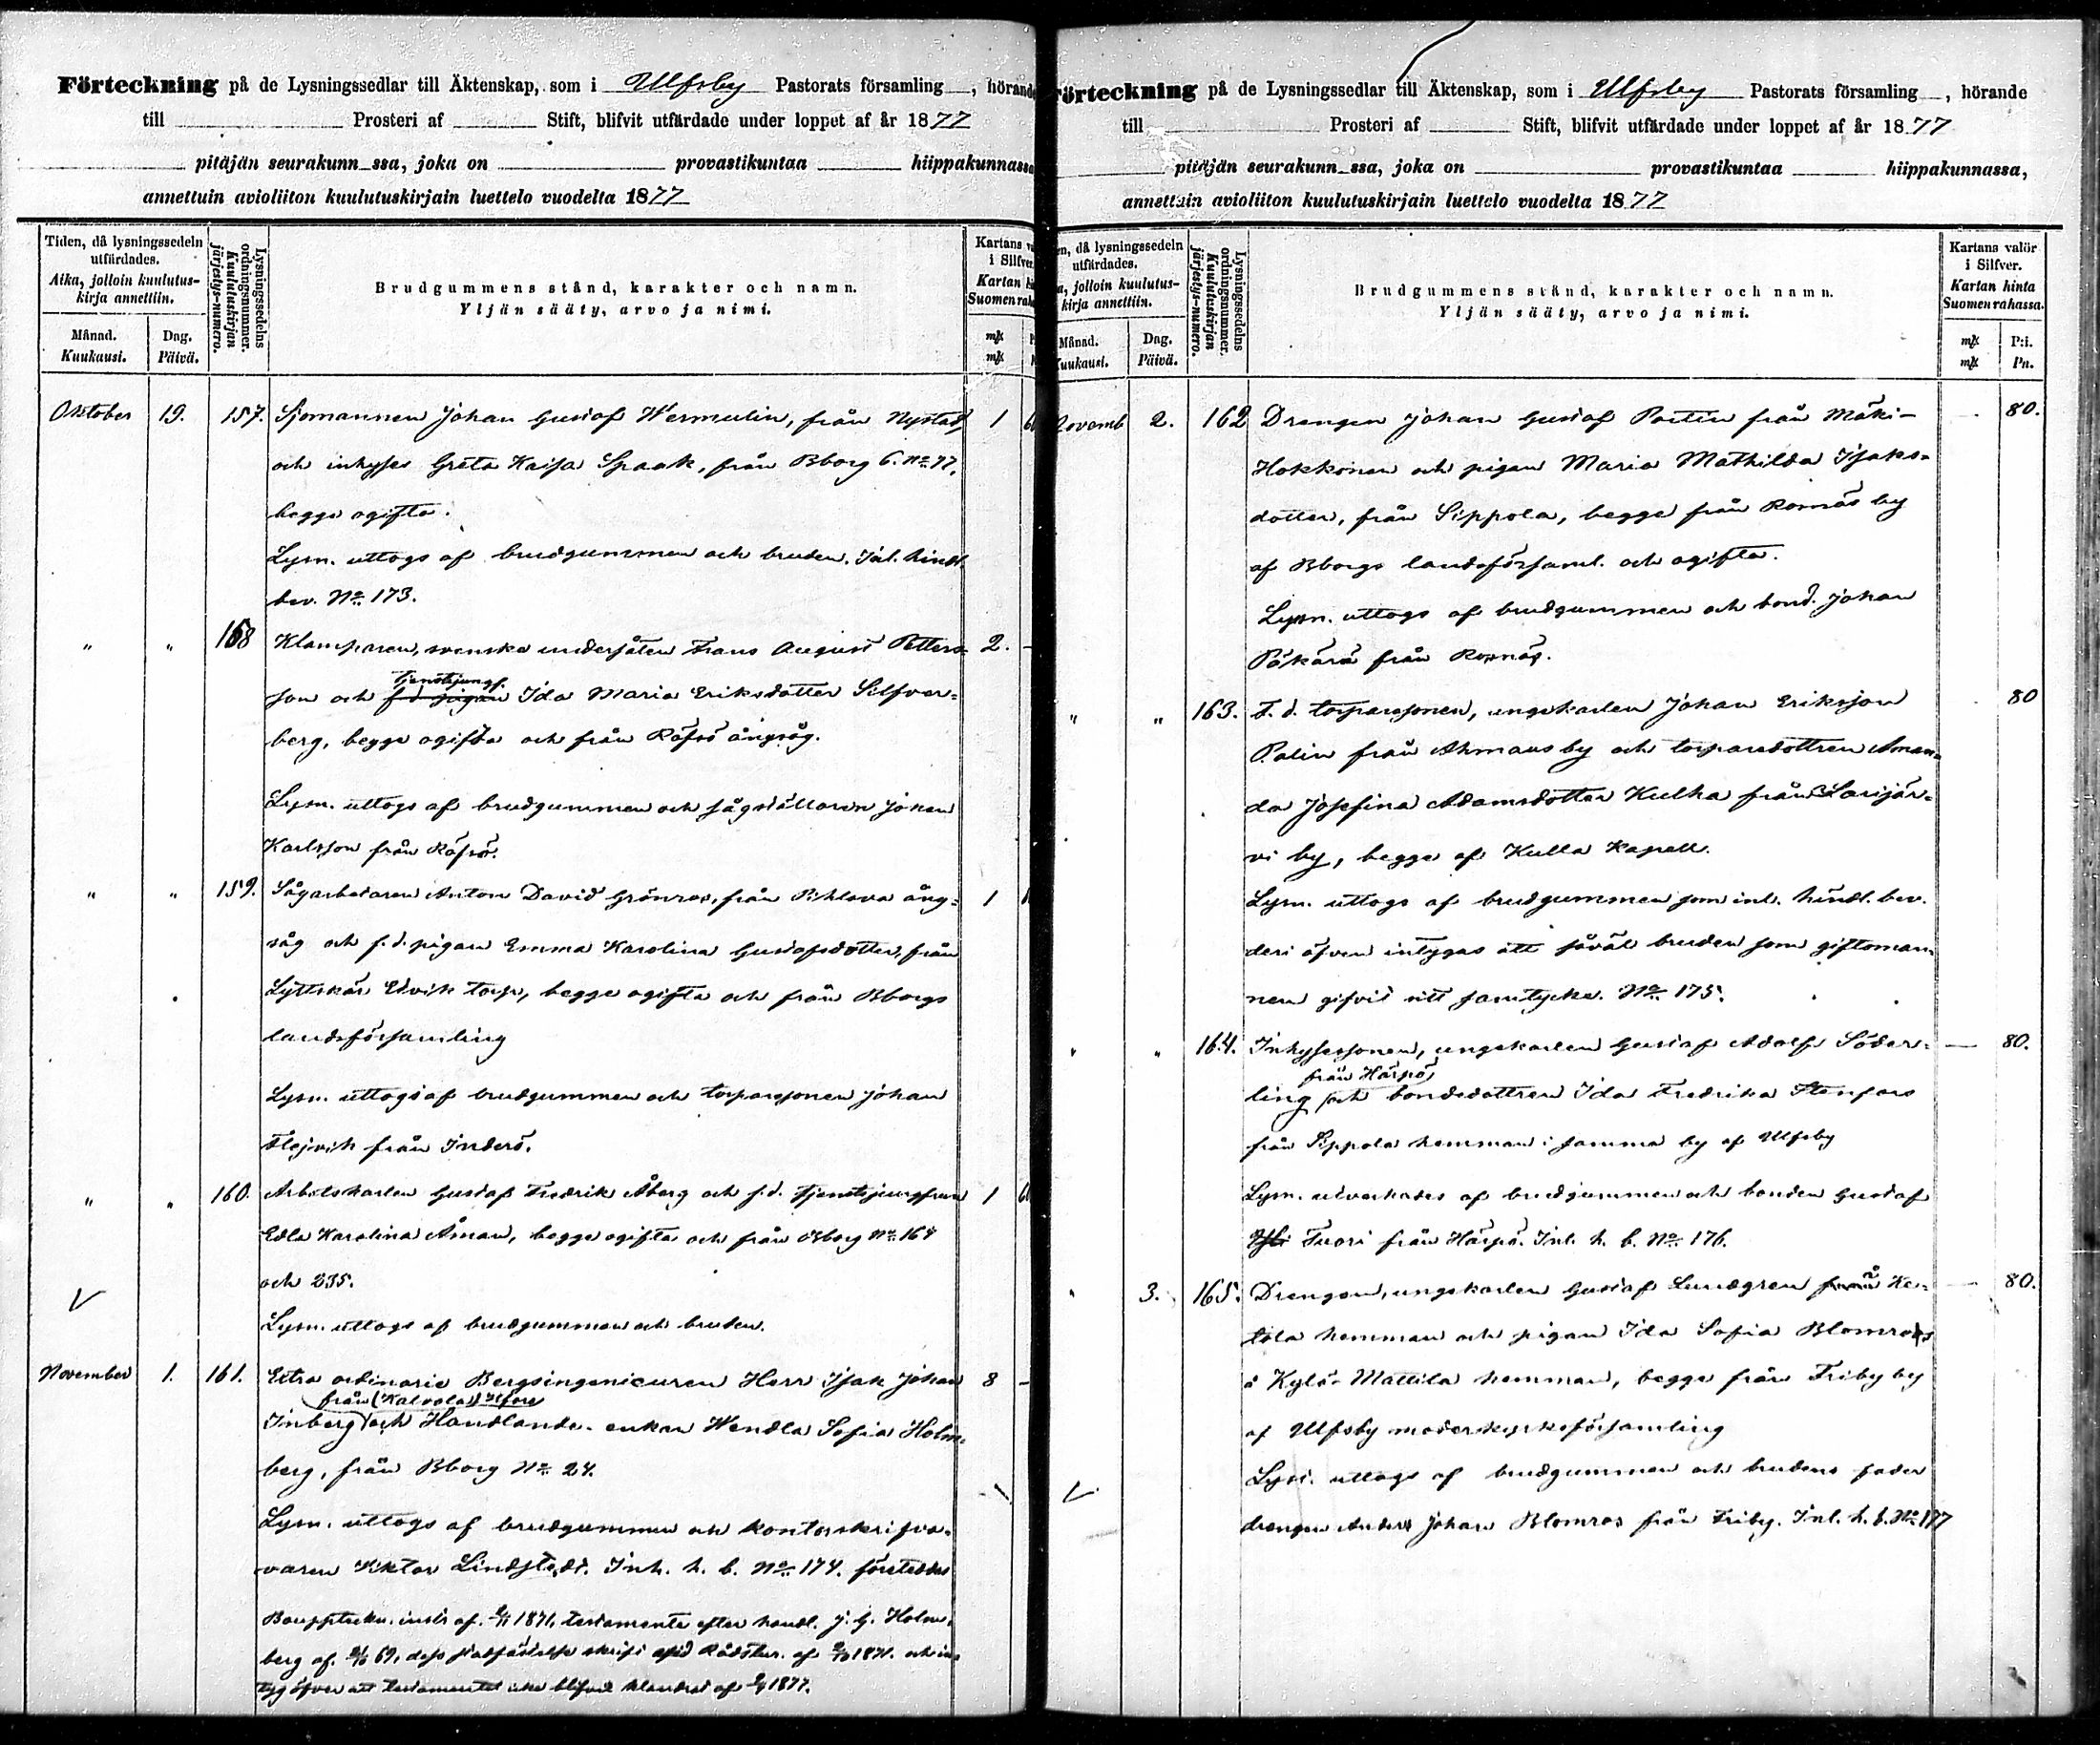 Förteckning på de Lysningssedlar till Äktenskap, som i Ulfsby Pastorats församling , hörande
till Prosteri af Stift, blifvit utfärdade under loppet af år 1877
pitäjän seurakunn ssa, joka on provastikuntaa hiippakunnassa
annettuin avioliiton kuulutuskirjain luettelo vuodelta 1877
Tiden, då lysningssedeln utfärdades.
Aika, jolloin kuulutus-kirja annettiin.
Månad. Kuukausi.
Dag. Päivä.
Lysningssedelns ordningsnummer. Kuulutuskirjan järjestys-numero.
Brudgummens stånd, karakter och namn.
Yljän sääty, arvo ja nimi.
Kartans
i Silfver.
Kartan
Suomen
Oktober 19. 157. Sjömannen Johan Gustaf Wermelin, från Nystad, 1
och inhyses Greta Kaisa Spaak, från Bborg 6. No 77,
begge ogifta.
Lysn. uttogs af brudgummen och bruden. Inl. hindl.
bev. No 173.
" " 158 Klamparen, svenska undersåten Frans August Petters- 2. -
son och f.d. pigan tjenstejungf. Ida Maria Eriksdotter Silfver=
berg, begge ogifta och från Räfsö ångsåg.
Lysn. uttogs af brudgummen och sågställaren Johan
Karlsson från Räfsö.
" " 159. Sågarbetaren Anton David Grönros, från Pihlava ång= 1
såg och f.d. pigan Emma Karolina Gustafsdotter, från
Lyttskär Edvik torp, begge ogifta och från Bborgs
landsförsamling
Lysn. uttogs af brudgummen och torparesonen Johan
Flejvik från Inderö.
" " 160. Arbetskarlen Gustaf Fredrik Åberg och f.d. tjenstejungfrun 1
Edla Karolina Åman, begge ogifta och från Bborg No 164
och 235.
V
Lysn. uttogs af brudgummen och bruden.
November 1. 161. Extra ordinarie Bergsingenieuren Herr Isak Johan 8 -
från (Kalvola) H:fors
Inberg och Handlande- enkan Wendla Sofia Holm-
berg, från Bborg No 24.
Lysn. uttogs af brudgummen och kontorskrifva-
varen Viktor Lindstedt. Inh. h. b. No 174. företeddes
1871, testamente efter handl. J. G. Holm-
berg af 69, dess skrift Rådstur. af 1871. och in-
tyg öfver att testamentet icke blifvit klandrat af 1877.
Förteckning på de Lysningssedlar till Äktenskap, som i Ulfsby Pastorats församling , hörande
till Prosteri af Stift, blifvit utfärdade under loppet af år 1877
pitäjän seurakunn ssa, joka on provastikuntaa hiippakunnassa,
annettuin avioliiton kuulutuskirjain luettelo vuodelta 1877
då lysningssedeln utfärdades.
jolloin kuulutus-kirja annettiin.
Månad. Kuukausi.
Dag. Päivä.
Lysningssedelns ordningsnummer. Kuulutuskirjan järjestys-numero.
Brudgummens stånd, karakter och namn.
Yljän sääty, arvo ja nimi.
Kartans valör
i Silfver.
Kartan hinta
Suomen rahassa.
mk P:i.
mk Pn.
Novemb 2. 162 Drengen Johan Gustaf Partin från Mäki- - 80.
Hokkonen och pigan Maria Mathilda Isaks-
dotter, från Sippola, begge från Rosnäs by
af Bborgs landsförsaml. och ogifta.
Lysn. uttogs af brudgummen och bond. Johan
Päkärä från Rosnäs.
" " 163. F. d. torparesonen, ungkarlen Johan Eriksson 80
Palin från Ahmaus by och torparedottren Aman=
da Josefina Adamsdotter Kulha från Larijär=
vi by, begge af Kulla Kapell.
Lysn. uttogs af brudgummen som inl. hindl. bev.
deri öfven intygas att såväl bruden som giftoman=
nen gifvit sitt samtycke. No 175.
" " 164. Inhysessonen, ungkarlen Gustaf Adolf Söder= - 80.
från Härpö
ling och bondedottren Ida Fredrika Stenfors
från Sippola hemman i samma by af Ulfsby
Lysn. utverkades af brudgummen och bonden Gustaf
Tuori från Härpö. Inl. h. b. No 176.
" 3. 165. Drengen, ungkarlen Gustaf Lundgren från Ke- - 80.
tola hemman och pigan Ida Sofia Blomros
å Kylä-Mattila hemman, begge från Friby by
af Ulfsby moderkyrkoförsamling
Lysn. uttogs af brudgummen och brudens fader
V
drengen Anders Johan Blomros från Friby. Inl. h. b. No 177